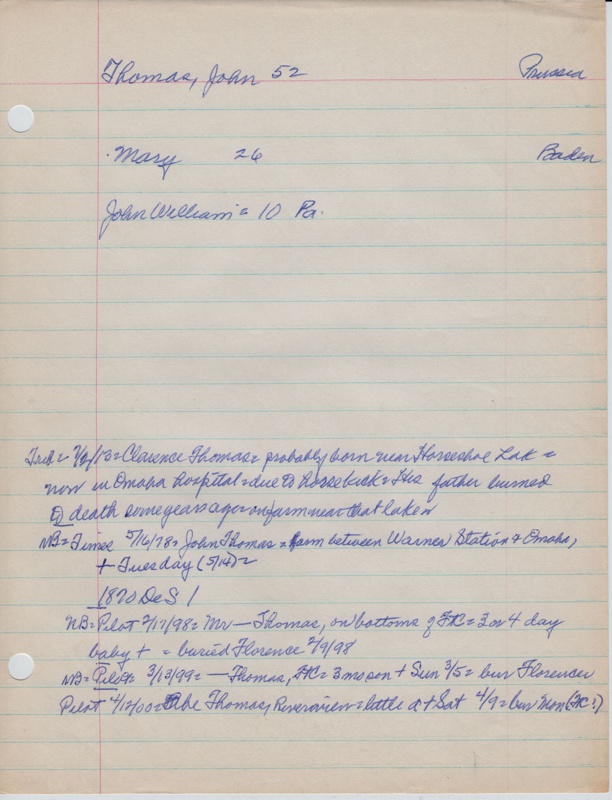 Thomas, John 52 Prussia
Mary 26 Baden
John William = 10 Pa.
7/2/13 = Clarence Thomas = probably born near Horseshoe Lak =
now in Omaha hospital = due to horsekick = His father burned
to death some years ago on farm near that lake =
NB = Times 5/16/78 = John Thomas = farm between Warner Station & Omaha,
+ Tuesday (5/14) =
1870 DeS 1
NB = Pilot 2/17/98 = Mr — Thomas, on bottoms of FtC = 3 or 4 day
baby + = buried Florence 2/9/98
NB = Pilot 3/13/99 = — Thomas, FtC = 3 mo son + Sun 3/5 = bur Florence
Pilot 4/12/00 = Abe Thomas, Riverview = little + Sat 4/9 = bur Mon (FtC?)